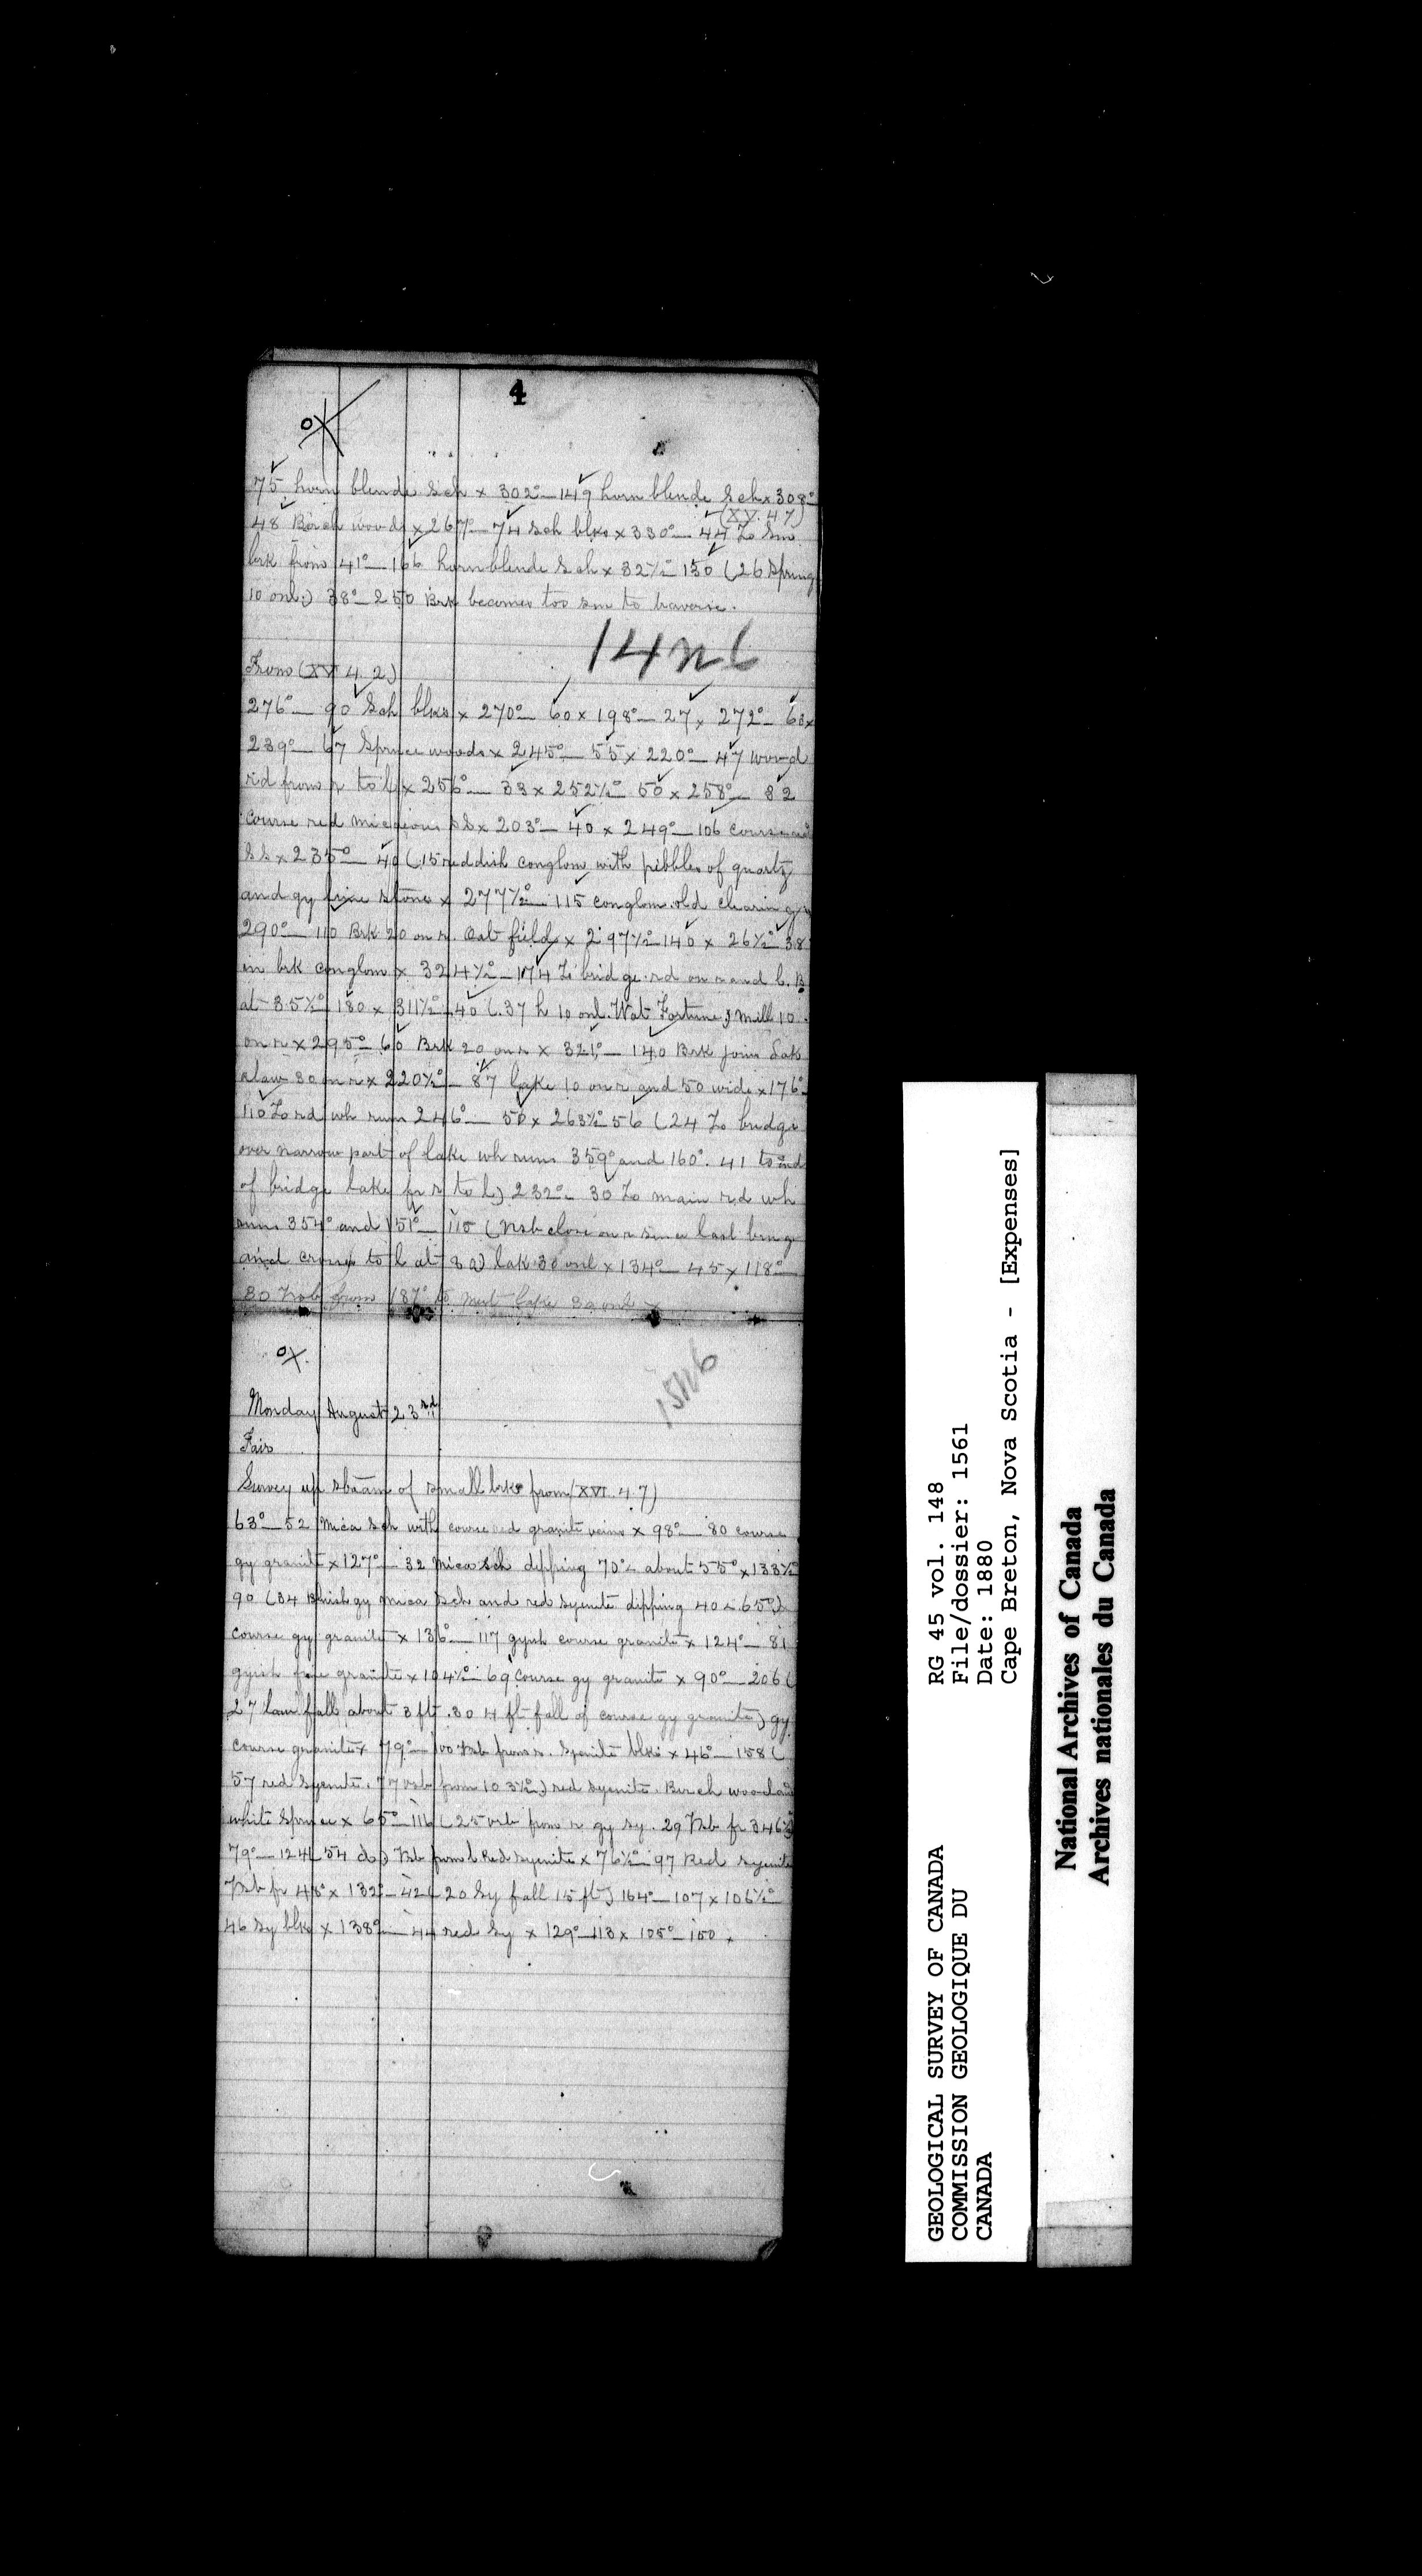 4
75 horn blende Sch x 302°— 149 horn blende Sch x 308°
(XV. 47)
48 Birch woods x 267°— 74 Sch blks x 330°— 44 To Sm
brk from 41°— 166 hornblende Sch x 32½° 130 (26 Spring
10 onl.) 38°— 250 Brk becomes too sm to traverse.
14n6
From (XV 4. 2)
276°— 90 Sch blks x 270°— 60 x 198°— 27 x 272°— 60 x
239°— 67 Spruce woods x 245°— 55 x 220°— 47 wood
rd from r to l x 256°— 33 x 252½° 50 x 258°— 82
course red micacious SS x 203°— 40 x 249°— 106 course
SS x 235°— 40 (15 reddish conglom with pebbles of quartz
and gy lime stone x 277½°— 115 conglom. old clearing
290°— 110 Brk 20 on r. Oat field x 297½° 140 x 26½° 38
in brk conglom x 324½°— 174 To bridge. rd on r and l. B
at 35½° 180 x 311½° 40 (.37 h 10 onl. Wat Fortune, mill 10
on r x 295°— 60 Brk 20 on r x 321°— 140 Brk joins Lak
30 on r x 220½°— 87 lake 10 on r and 50 wide x 176°
110 To rd wh runs 246°— 50 x 263½° 56 (24 To bridge
over narrow part of lake wh runs 359° and 160°. 41 to end
of bridge lake fr r to l) 232°— 30 To main rd wh
runs 354° and 151°— 115 (close on r since last brng
and crosses to l at 80) lake 30 onl x 134°— 45 x 118°—
80 from 187° lake 30 onl
15n6
Monday August 23rd
Fair
Survey up stream of small brk from (XVI. 47)
63°— 52 Mica Sch with course red granite veins x 98°— 80 course
gy granite x 127°— 32 Mica Sch dipping 70° < about 55° x 133½°
90 (34 Bluish gy mica Sch and red syenite dipping 40 < 65°)
course gy granite x 136°— 117 gyish course granite x 124°— 81
gyish fine granite x 104½° 69 course gy granite x 90°— 206 (
27 fall about 3 ft. 30 4 ft fall of course gy granite) gy
course granite x 79°— 100 from r. Syenite blks x 46°— 158 (
57 red Syenite. 77 from 103½°.) red syenite. Birch wood and
white Spruce x 65°— 116 (25 from r gy sy. 29 fr 346½°)
79°— 124 (54 do) from l Red Syenite x 76½° 97 Red Syenite
fr 48° x 132°— 42 (20 Sy fall 15 ft) 164°— 107 x 106½°
46 Sy blks x 138°— 44 red Sy x 129°— 113 x 105°— 150 x
GEOLOGICAL SURVEY OF CANADA
COMMISSION GEOLOGIQUE DU
CANADA
RG 45 vol. 148
File/dossier: 1561
Date: 1880
Cape Breton, Nova Scotia - [Expenses]
National Archives of Canada
Archives nationales du Canada